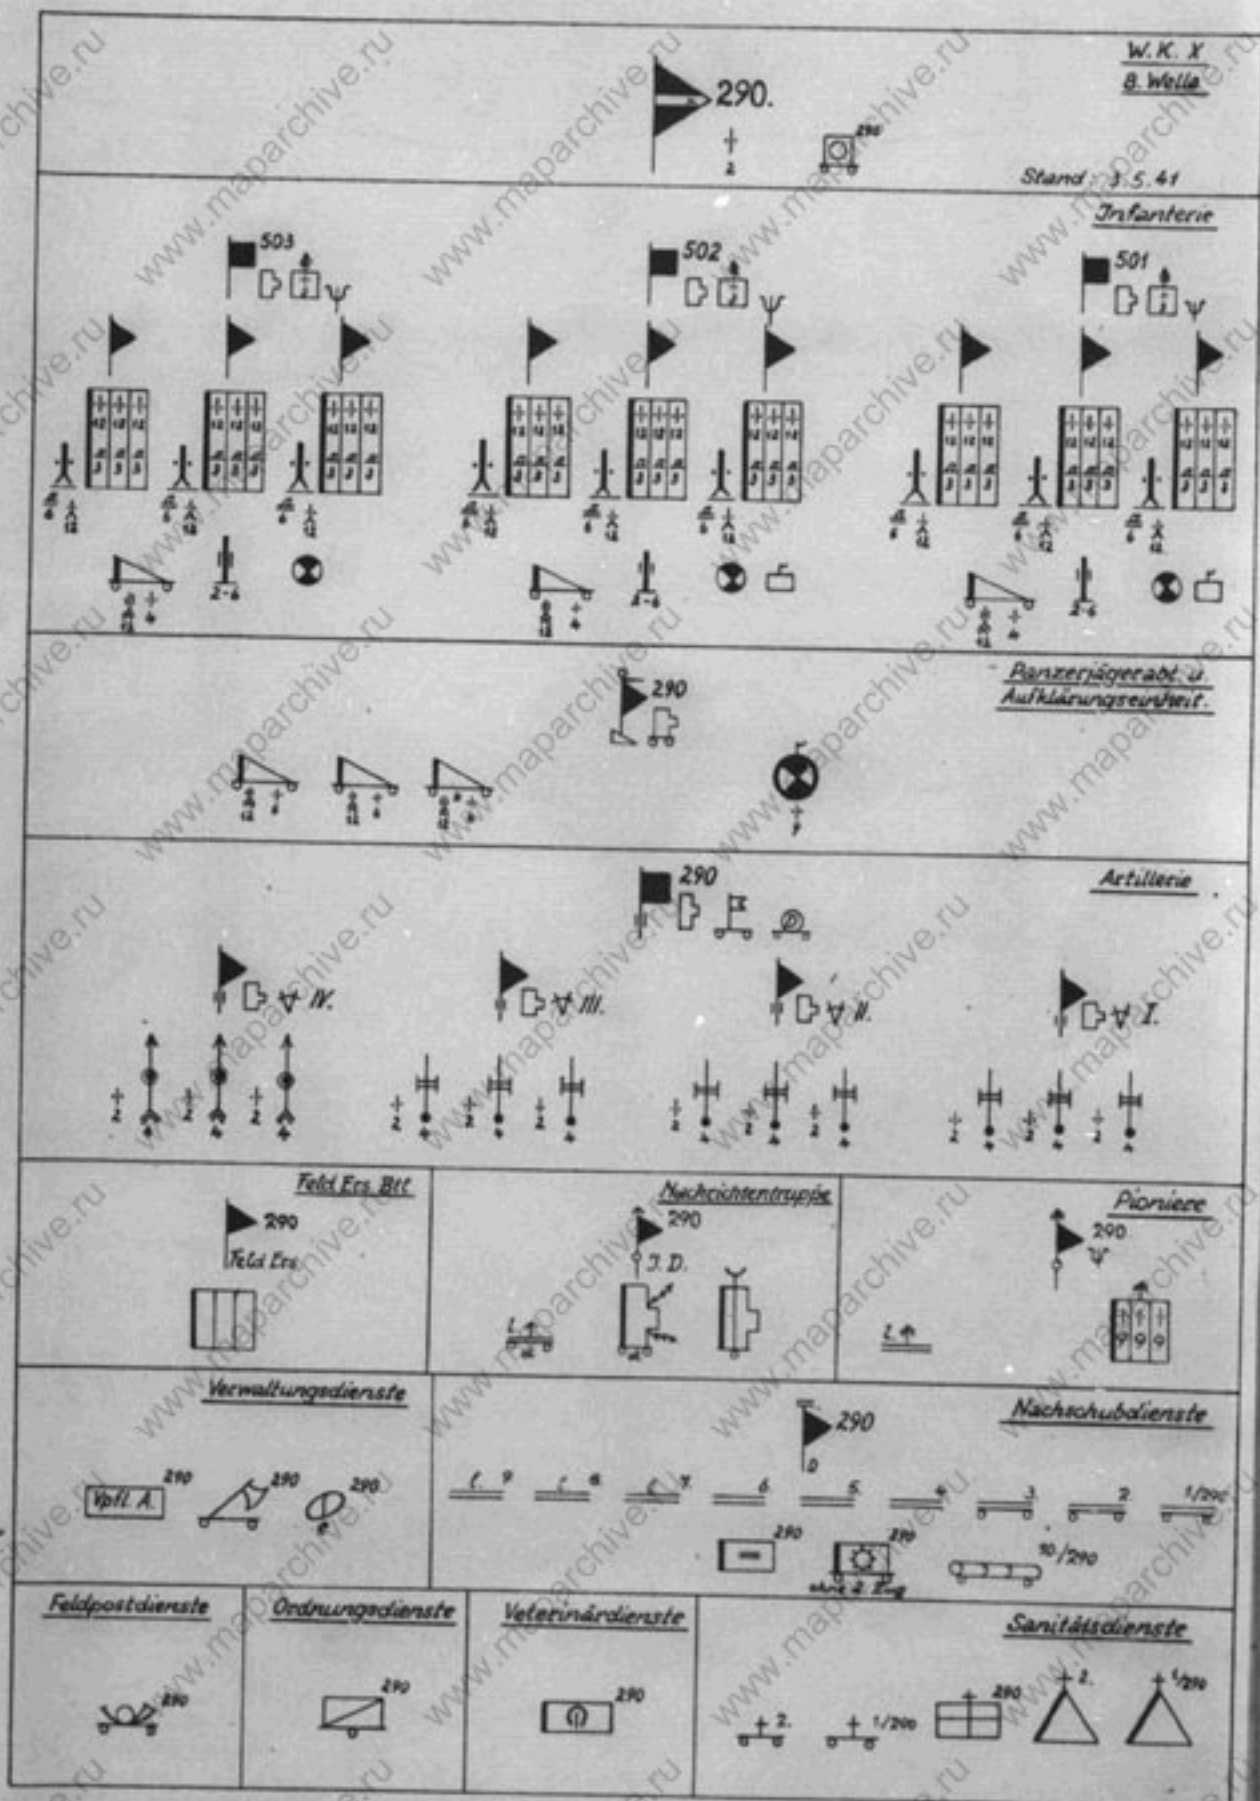 W. K. X
8. Welle
290.
2
290
Stand: 3.5.41
Infanterie
503
502
501
12 12 12
3 3 3
6 12
2-6
4
12
Panzerjägerabt. u.
Aufklärungseinheit.
290
12
6
Artillerie
290
IV.
III.
II.
I.
2 4 2 4 2 4
Feld Ers. Btl
290
Feld Ers.
Nachrichtentruppe
290
J. D.
l.
Pioniere
290
l.
9 9 9
Verwaltungsdienste
290
Vpfl. A.
290
290
e
Nachschubdienste
290
D
l. 9
8.
7.
6.
5.
4.
3.
2.
1/290
290
290
ohne 2. Zug
10/290
Feldpostdienste
290
Ordnungsdienste
290
Veterinärdienste
290
Sanitätsdienste
2.
1/290
290
2.
1/290
www.maparchive.ru